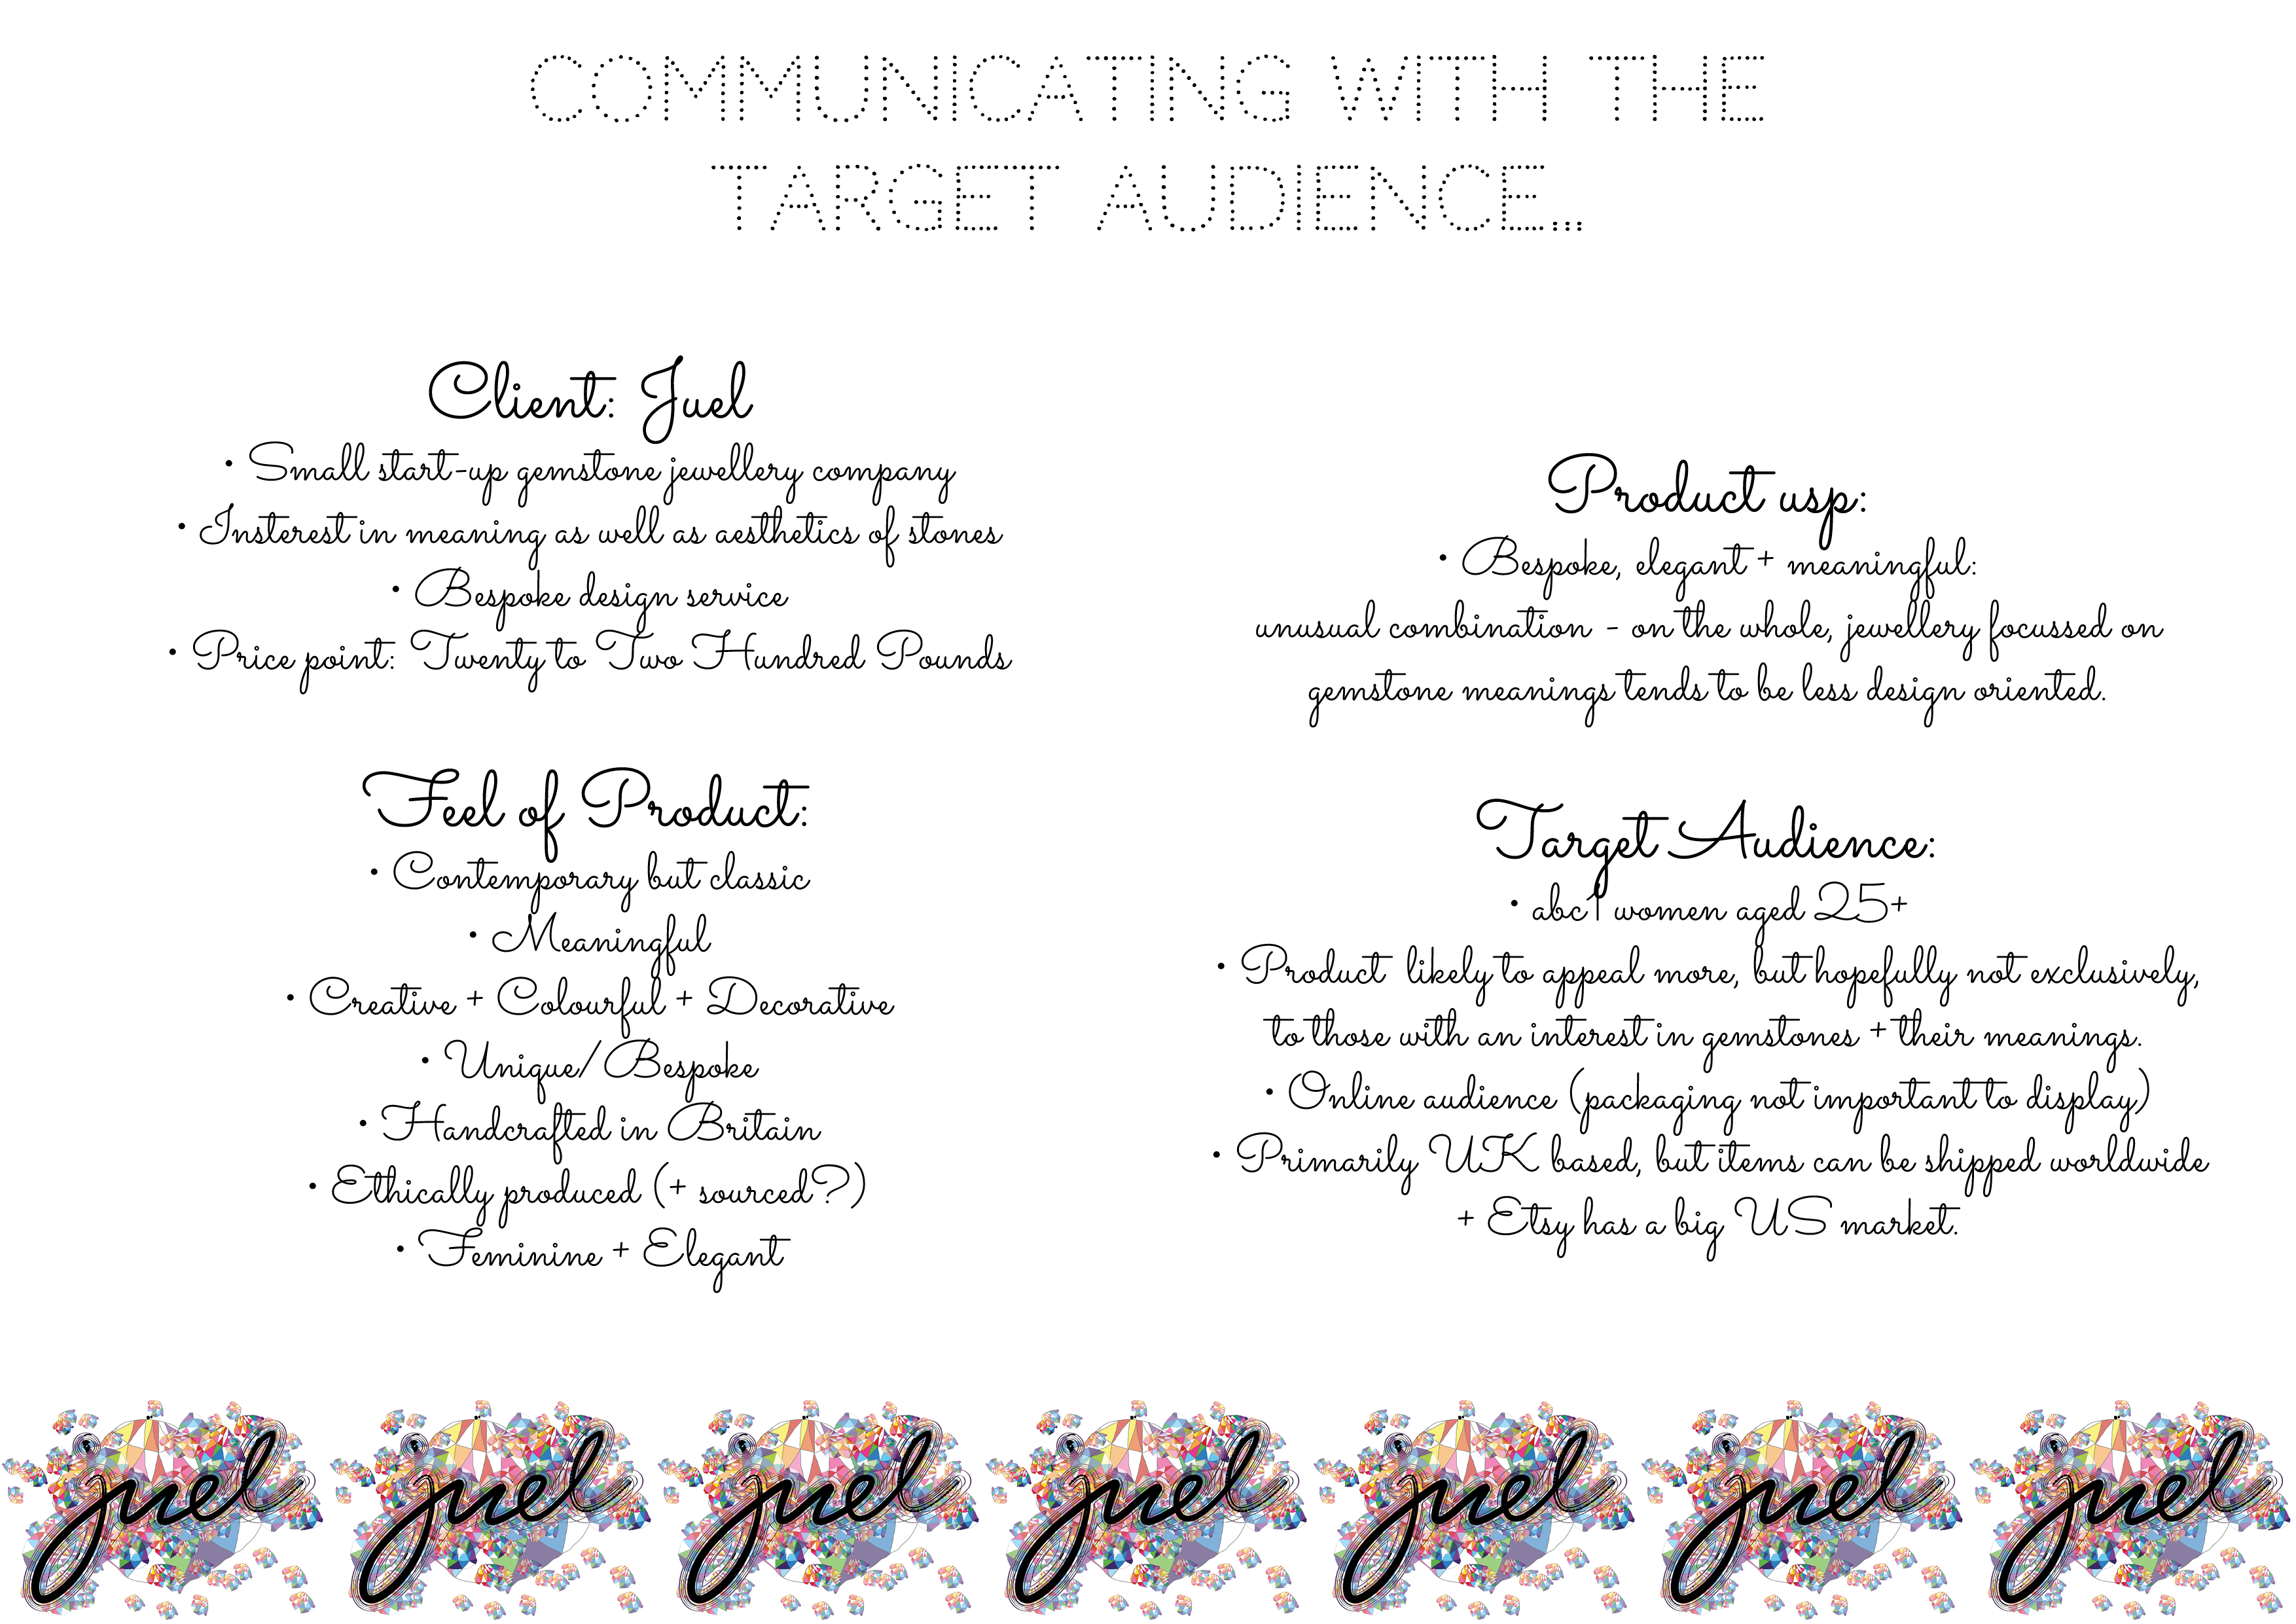 COMMUNICATING WITH THE
TARGET AUDIENCE...
Client: Juel
• Small start-up gemstone jewellery company
• Insterest in meaning as well as aesthetics of stones
• Bespoke design service
• Price point: Twenty to Two Hundred Pounds
Feel of Product:
• Contemporary but classic
• Meaningful
• Creative + Colourful + Decorative
• Unique/Bespoke
• Handcrafted in Britain
• Ethically produced (+ sourced?)
• Feminine + Elegant
Product usp:
• Bespoke, elegant + meaningful:
unusual combination - on the whole, jewellery focussed on
gemstone meanings tends to be less design oriented.
Target Audience:
• abc1 women aged 25+
• Product likely to appeal more, but hopefully not exclusively,
to those with an interest in gemstones + their meanings.
• Online audience (packaging not important to display)
• Primarily UK based, but items can be shipped worldwide
+ Etsy has a big US market.
juel juel juel juel juel juel juel